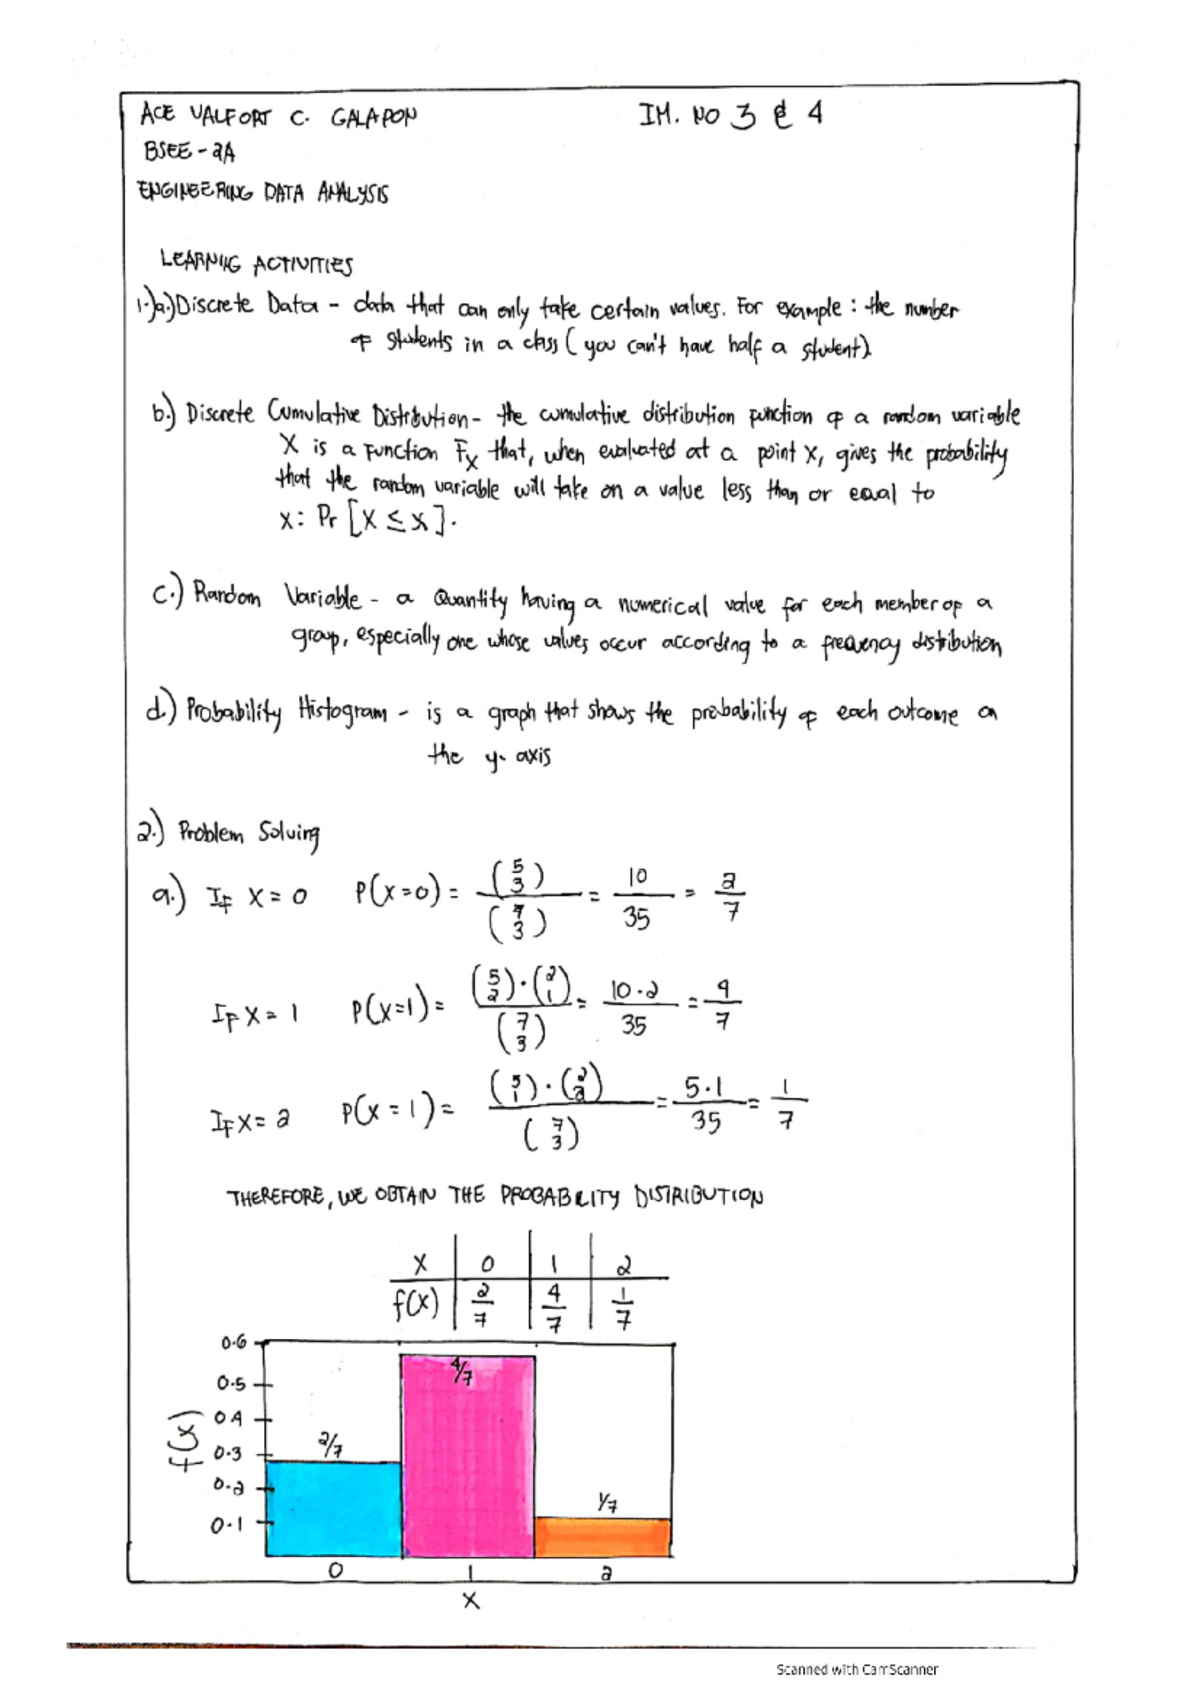 ACE VALFORT C. GALAPON IM. NO 3 & 4
BSEE-2A
ENGINEERING DATA ANALYSIS
LEARNING ACTIVITIES
1.)a.) Discrete Data - data that can only take certain values. For example: the number
of students in a class (you can't have half a student).
b.) Discrete Cumulative Distribution - the cumulative distribution function of a random variable
X is a function Fx that, when evaluated at a point x, gives the probability
that the random variable will take on a value less than or equal to
x: Pr [X ≤ x].
c.) Random Variable - a Quantity having a numerical value for each member of a
group, especially one whose values occur according to a frequency distribution
d.) Probability Histogram - is a graph that shows the probability of each outcome on
the y-axis
2.) Problem Solving
a.) IF X = 0 P(X=0) = (5 3) / (7 3) = 10/35 = 2/7
IF X = 1 P(X=1) = (5 2)·(2 1) / (7 3) = 10·2/35 = 4/7
IF X = 2 P(X = 1) = (5 1)·(2 2) / (7 3) = 5·1/35 = 1/7
THEREFORE, WE OBTAIN THE PROBABILITY DISTRIBUTION
X 0 1 2
f(X) 2/7 4/7 1/7
0.6
0.5
0.4
0.3
0.2
0.1
f(x)
2/7
4/7
1/7
0 1 2
X
Scanned with CamScanner